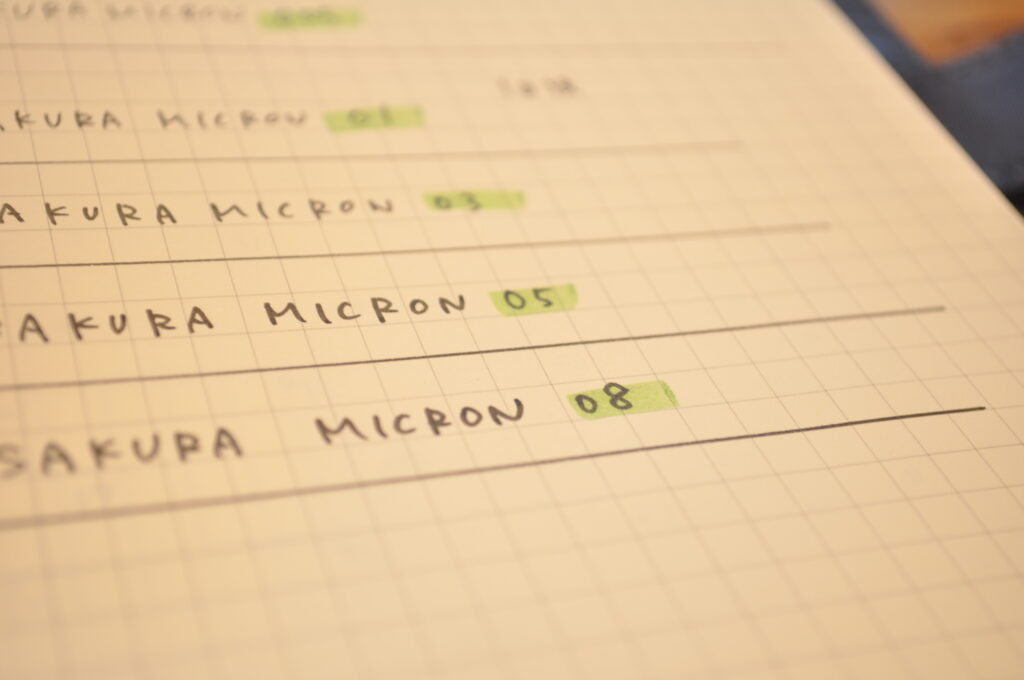 URA MICRON
AKURA MICRON 01
AKURA MICRON 03
SAKURA MICRON 05
SAKURA MICRON 08